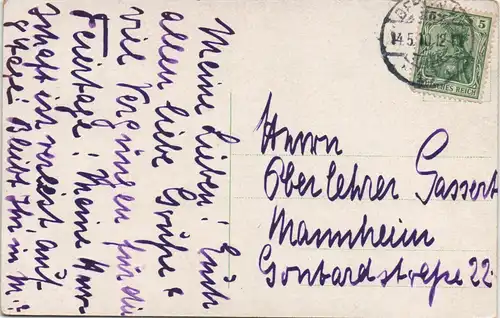 Meine Lieben! Euch
allen liebe Grüße &
viel Vergnügen für die
Feiertage! Meine
ist
Bleibt Ihr in M.?
Herrn
Oberlehrer Gassert
Mannheim
Gontardstraße 22.
14.5.10.12
5
DEUTSCHES REICH